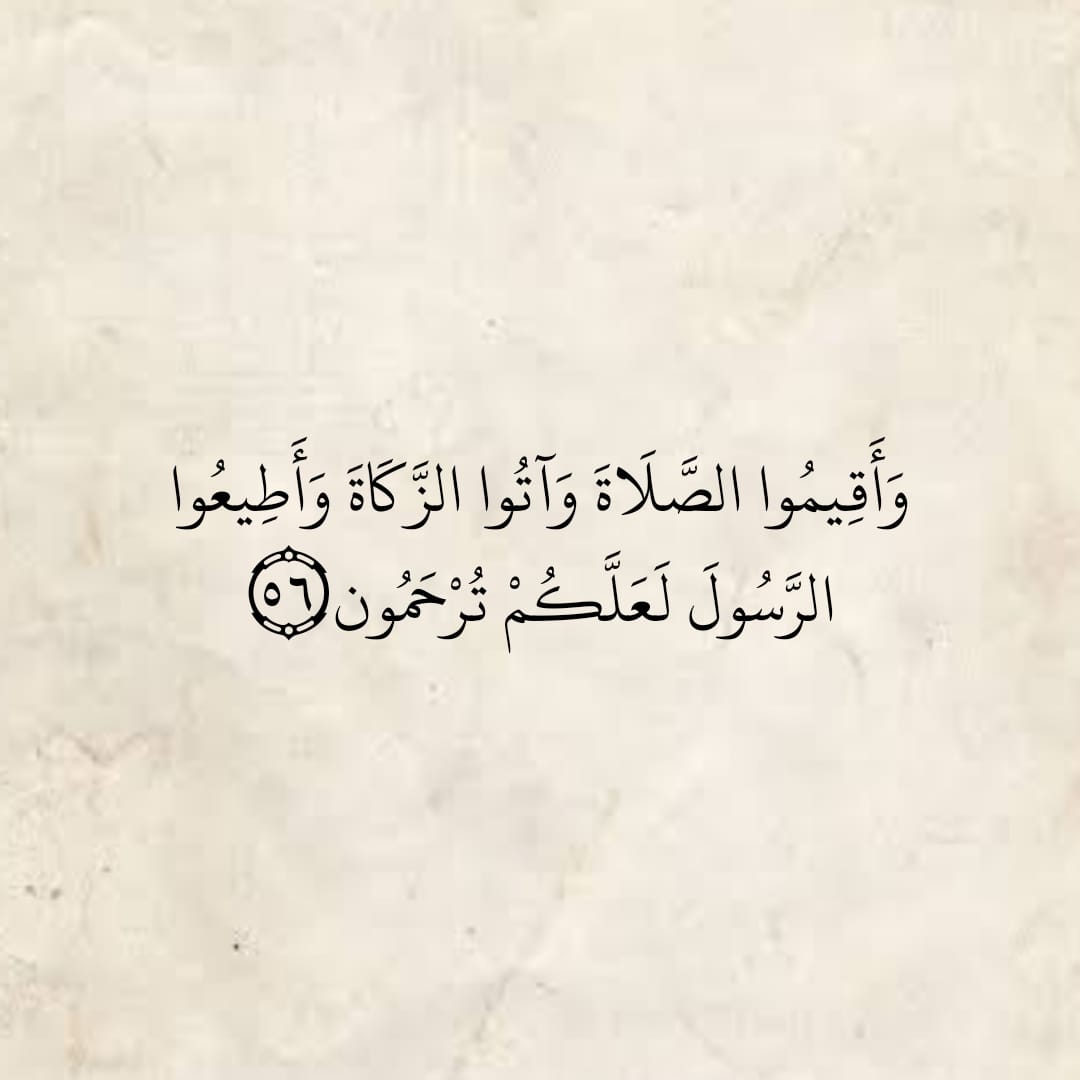 وَأَقِيمُوا الصَّلَاةَ وَآتُوا الزَّكَاةَ وَأَطِيعُوا
الرَّسُولَ لَعَلَّكُمْ تُرْحَمُون ٥٦